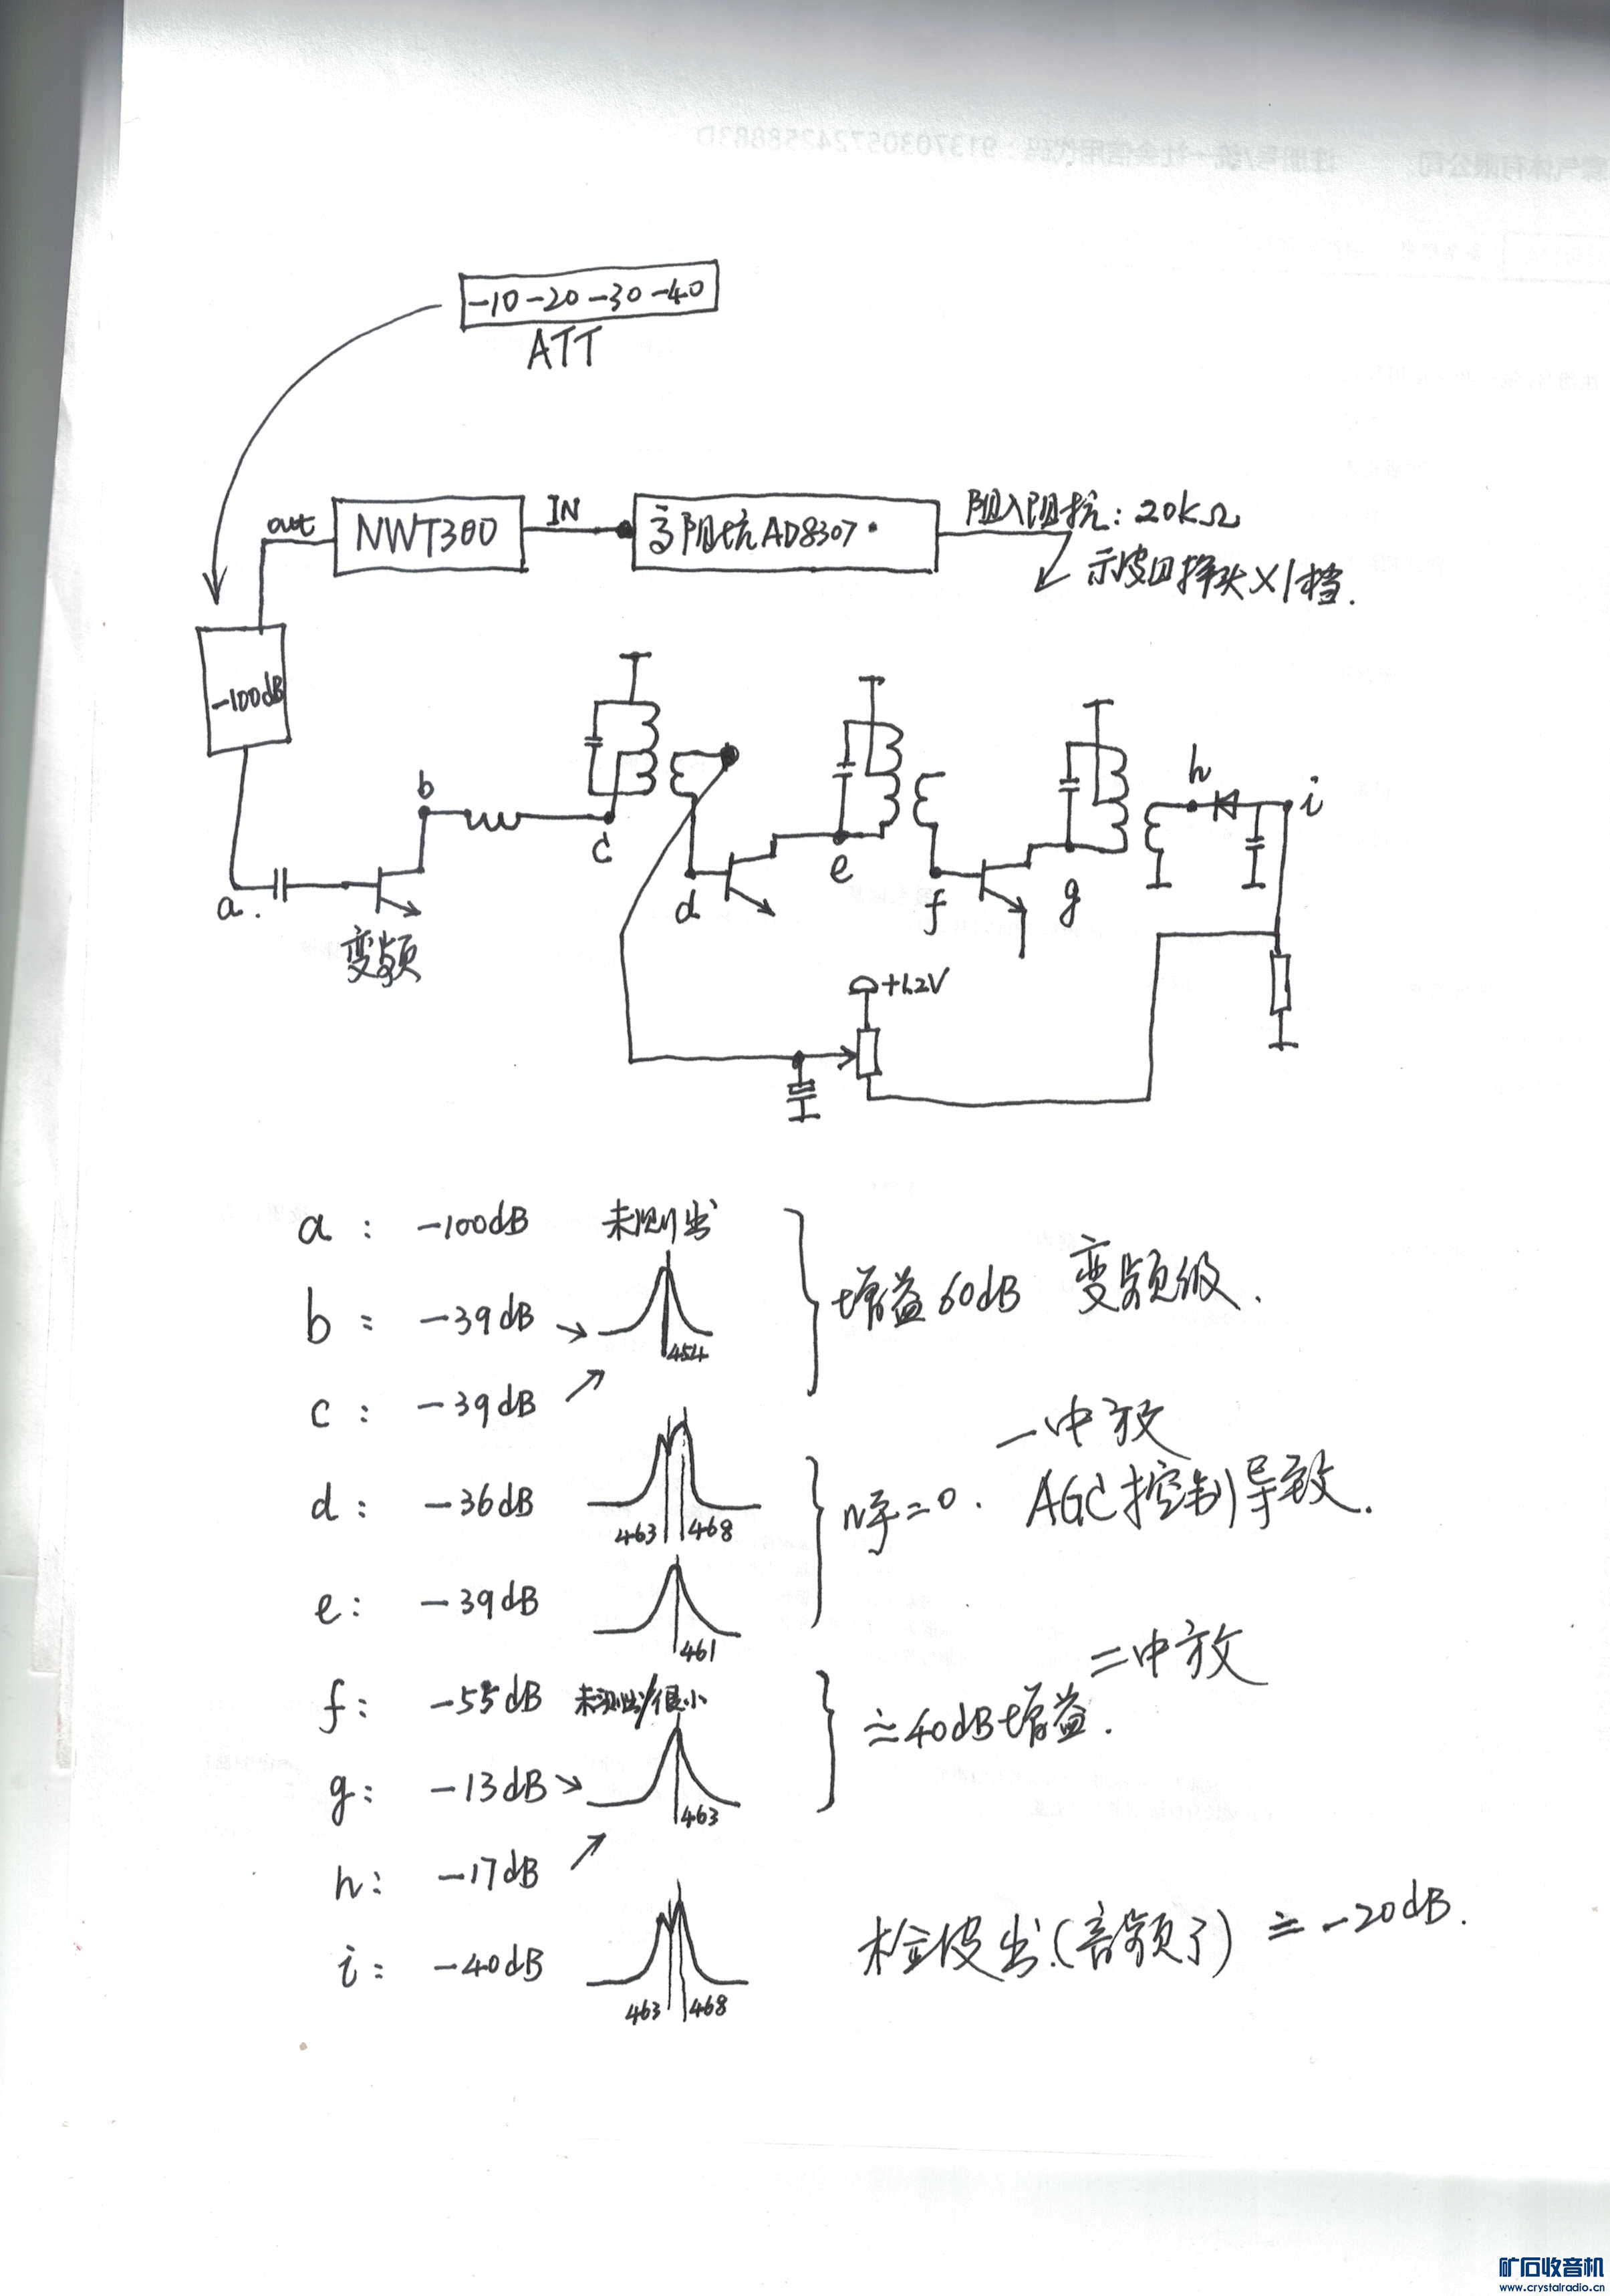 -10 -20 -30 -40
ATT
out
NWT300
IN
高阻抗AD8307
阻入阻抗：20kΩ
示波口探头×1档.
-100dB
b
c
h
i
a.
d
e
f
g
变频
+1.2V
a： -100dB 未测出
b： -39dB
454
增益60dB 变频级.
c： -39dB
一中放
d： -36dB
463 468
AGC控制导致.
e： -39dB
461
二中放
f： -55dB 未测出/很小
≐40dB增益.
g： -13dB
463
h： -17dB
i： -40dB
463 468
检波出(音频了) ≐ -20dB.
矿石收音机
www.crystalradio.cn